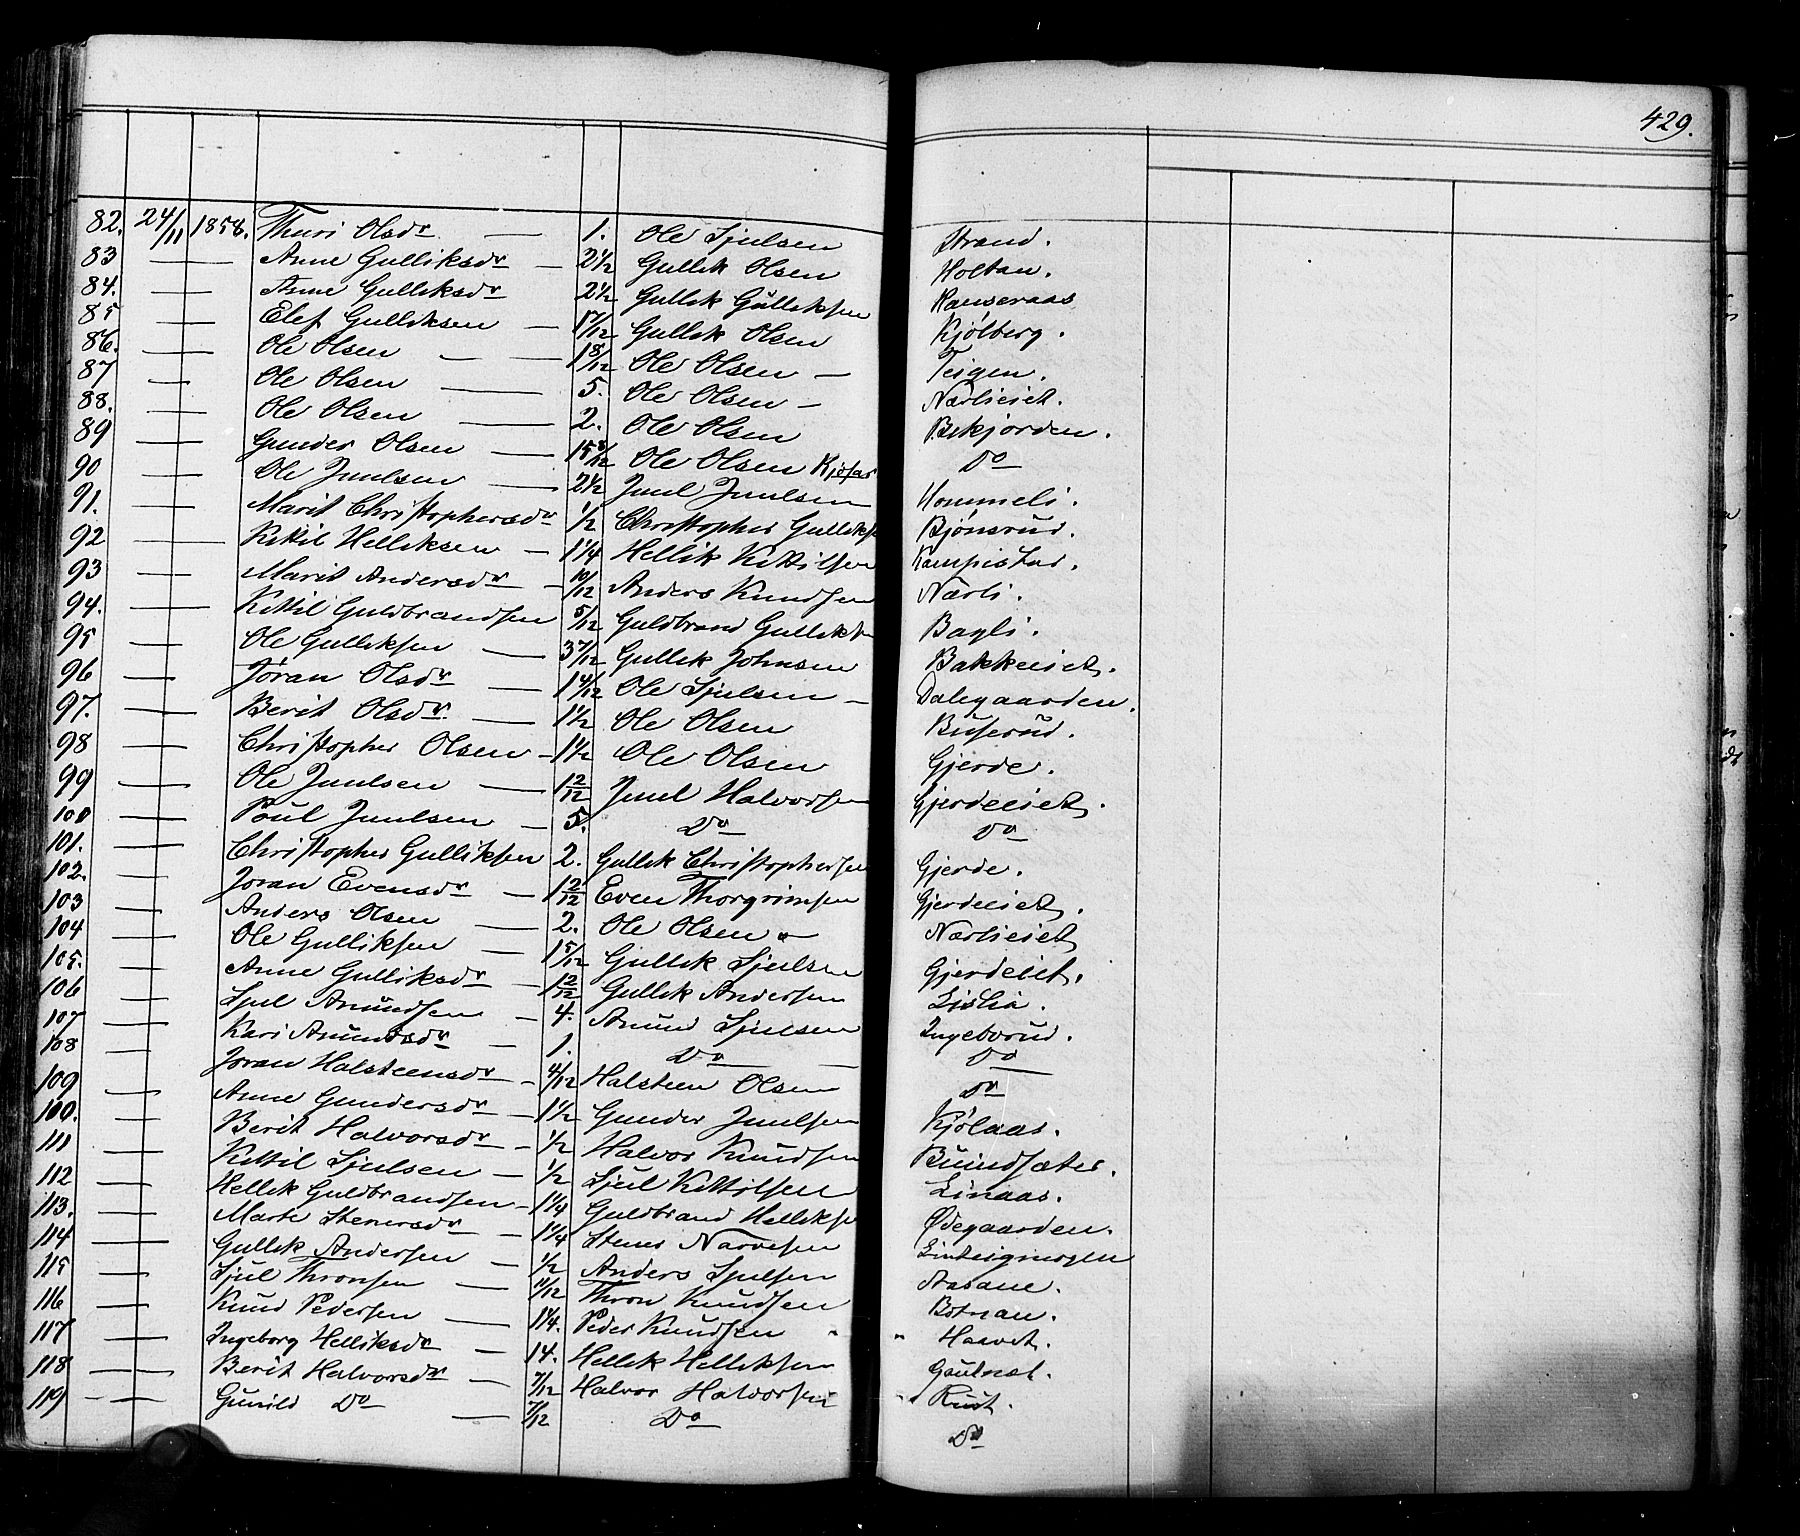 429.
82. 24/11 1858. Thuri Olsdr — 1. Ole Sjulsen Strand.
83 — — Anne Gulliksdr — 2 1/2 Gullik Olsen Holtan.
84. — — Anne Gulliksdr 2 1/2 Gullik Gulliksen Hanseraas
85 — — Elef Gulliksen — 1 7/12 Gullik Olsen Kjölberg.
86. — — Ole Olsen — 1 8/12 Ole Olsen — Teigen.
87 — Ole Olsen — 5. Ole Olsen — Nærlieiet.
88. — Ole Olsen — 2. Ole Olsen Bekjorden.
89 — Gunder Olsen — 15 8/12 Ole Olsen Kjøsas Do
90 — Ole Juulsen — 2 1/2 Juul Juulsen Hommeli.
91. — Marit Christophersdr 1/2 Christopher Gulliks Bjönsrud.
92 — Kittil Helliksen — 1 1/4 Hellik Kittilsen Kampestad.
93 — Marit Andersdr — 10/12 Anders Knudsen Nærli.
94. — Kittil Guldbrandsen 5/12 Guldbrand Gulliks Bagli.
95 — Ole Gulliksen — 3 7/12 Gullik Johnsen Bakkeiet.
96 — Jøran Olsdr — 1 4/12 Ole Sjulsen — Dalegaarden.
97. — Berit Olsdr. — 1 1/2 Ole Olsen Buserud.
98 — Christopher Olsen — 1 1/2 Ole Olsen Gjerde.
99 — Ole Juulsen — 1 2/12 Juul Halvorsen Gjerdeeiet.
100 — Poul Juulsen — 5. Do Do
101. — Christopher Gulliksen 2. Gullik Christophersen Gjerde.
102. — Joran Evensdr — 1 2/12 Even Thorgrimsen Gjerdeeiet.
103 — Anders Olsen — 2. Ole Olsen — Nærlieiet
104 — Ole Gulliksen — 1 5/12 Gullik Sjulsen Gjerdeeiet.
105. — Anne Gulliksdr — 1 2/12 Gullik Andersen Lislia.
106 — Sjul Amundsen — 4. Amund Sjulsen Ingeborud.
107 — Kari Amundsdr — 1. Do — Do
108 — Joran Halsteensdr — 4/12 Halsteen Olsen Do
109 — Anne Gundersdr — 1 1/2 Gunder Juulsen Kjölaas.
100. — Berit Halvorsdr — 1/2 Halvor Knudsen Buindsæter.
111 — Kittil Sjulsen — 1/2 Sjul Kittilsen Linaas.
112 — Hellik Guldbrandsen — 1 1/4 Guldbrand Helliks Ødegaarden.
113. — Marte Stenersdr — 1 1/4 Stener Narvesen
114 — Gullik Andersen — 1/2 Anders Sjulsen Aasane.
115 — Sjul Thronsen — 11/12 Thron Knudsen Botnan.
116 — Knud Pedersen — 1 1/4. Peder Knudsen Haavet.
117 — Ingeborg Helliksdr — 14. Hellik Helliksen Gaulnæt.
118 — Berit Halvorsdr — 7/12 Halvor Halvorsen Rust.
119 — — Gunild Do — 7/12 Do Do